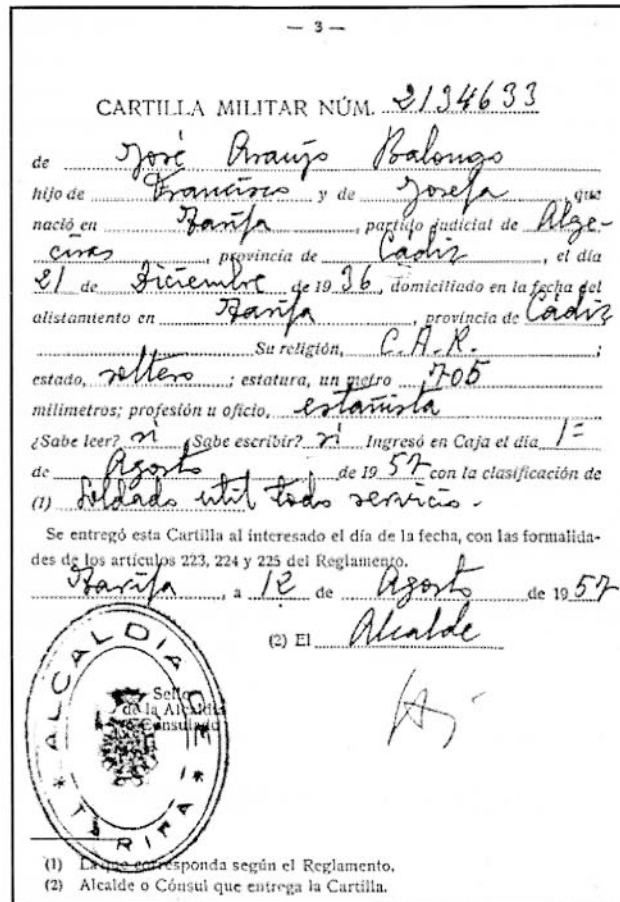 — 3 —
CARTILLA MILITAR NÚM. 2134633
de José Araujo Balongo
hijo de Francisco y de Josefa, que
nació en Tarifa, partido judicial de Alge-
ciras, provincia de Cádiz, el día
21 de Diciembre de 1936, domiciliado en la fecha del
alistamiento en Tarifa, provincia de Cádiz
Su religión, C.A.R. ;
estado, soltero; estatura, un metro 705
milímetros; profesión u oficio, estañista
¿Sabe leer? si ¿Sabe escribir? si Ingresó en Caja el día 1º
de Agosto de 1957 con la clasificación de
(1) Soldado util todo servicio.-
Se entregó esta Cartilla al interesado el día de la fecha, con las formalida-
des de los artículos 223, 224 y 225 del Reglamento.
Tarifa, a 12 de Agosto de 1957
(2) El Alcalde
* ALCALDIA DE *
TARIFA
Sello
de la Alcaldía
o Consulado
(1) La que corresponda según el Reglamento.
(2) Alcalde o Cónsul que entrega la Cartilla.